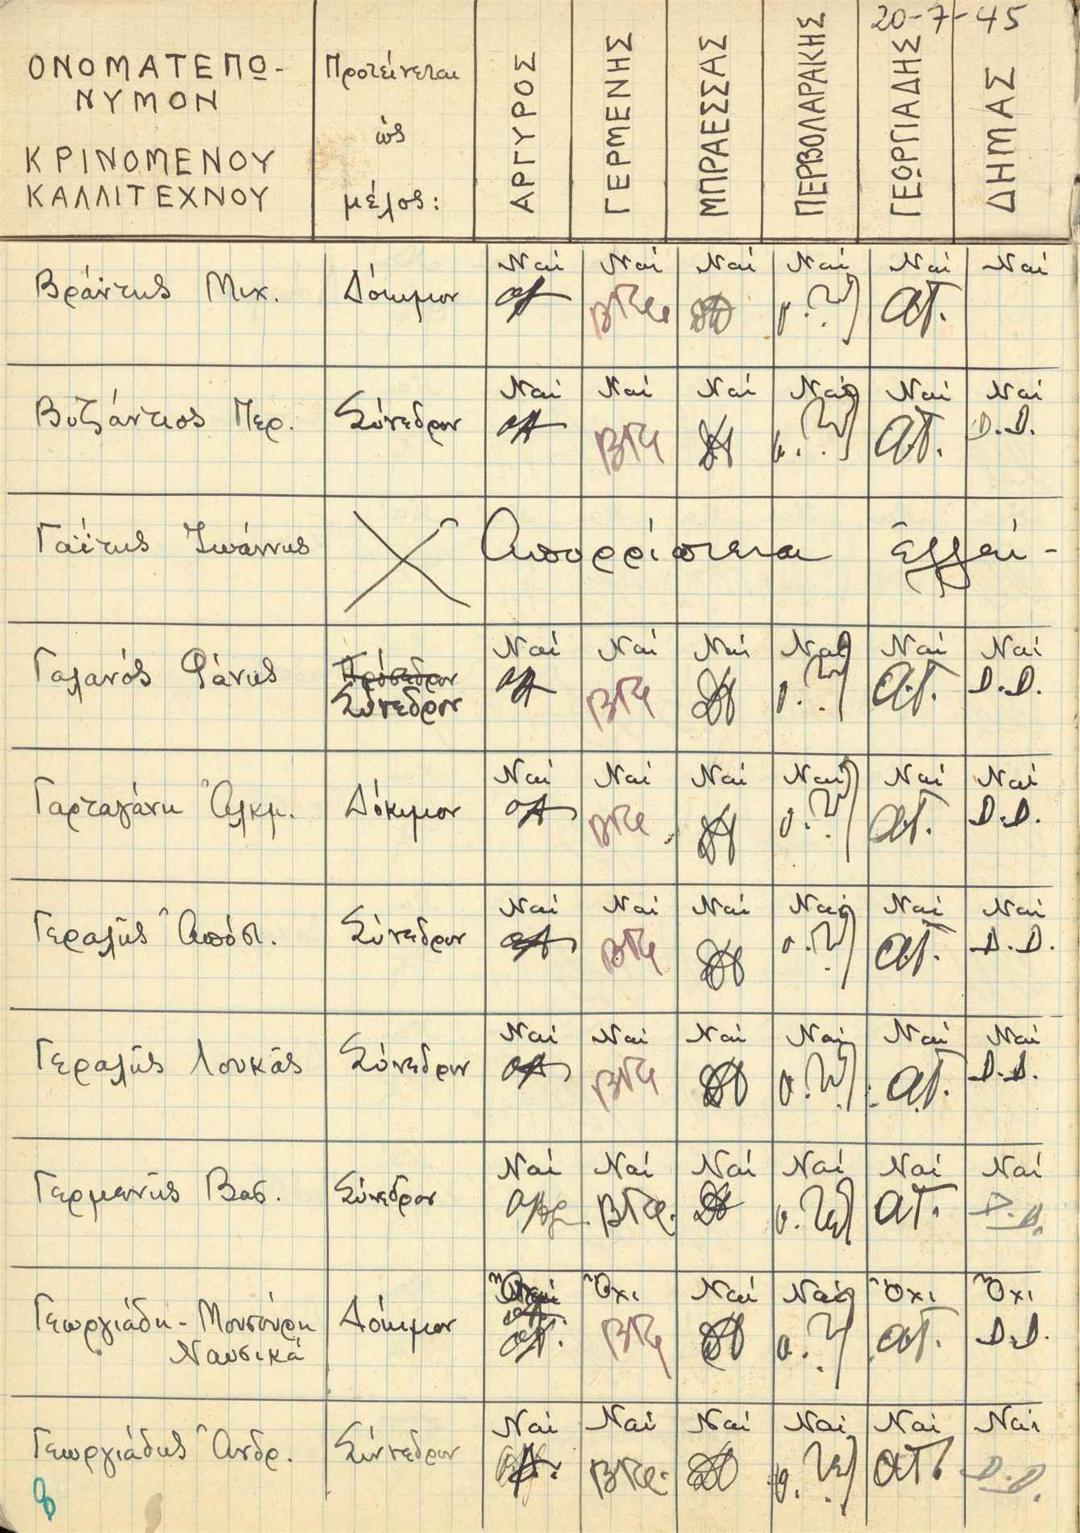 20-7-45
ΟΝΟΜΑΤΕΠΩ-
ΝΥΜΟΝ
ΚΡΙΝΟΜΕΝΟΥ
ΚΑΛΛΙΤΕΧΝΟΥ
Προτείνεται
ὡς
μέλος:
ΑΡΓΥΡΟΣ
ΓΕΡΜΕΝΗΣ
ΜΠΡΑΕΣΣΑΣ
ΠΕΡΒΟΛΑΡΑΚΗΣ
ΓΕΩΡΓΙΑΔΗΣ
ΔΗΜΑΣ
Βράντης Μιχ. Δόκιμον Ναί Ναί Ναί Ναί Ναί Ναί
ΑΓ.
Βυζάντιος Περ. Σύνεδρον Ναί Ναί Ναί Ναί Ναί Ναί
ΑΓ. Δ.Δ.
Γαΐτης Ἰωάννης Ἀπορρίπτεται
Γαλανός Φάνης Πρόσεδρον Ναί Ναί Ναί Ναί Ναί Ναί
Σύνεδρον ΑΓ. Δ.Δ.
Γαρταγάνη Ἀλκμ. Δόκιμον Ναί Ναί Ναί Ναί Ναί Ναί
ΑΓ. Δ.Δ.
Γεραλῆς Ἀπόστ. Σύνεδρον Ναί Ναί Ναί Ναί Ναί Ναί
ΑΓ. Δ.Δ.
Γεραλῆς Λουκᾶς Σύνεδρον Ναί Ναί Ναί Ναί Ναί Ναί
ΑΓ. Δ.Δ.
Γερμενῆς Βασ. Σύνεδρον Ναί Ναί Ναί Ναί Ναί Ναί
ΑΓ. Δ.Δ.
Γεωργιάδη-Μουσούρη Δόκιμον Ὄχι Ναί Ναί Ὄχι Ὄχι
Ναυσικᾶ ΑΓ. Δ.Δ.
Γεωργιάδης Ἀνδρ. Σύνεδρον Ναί Ναί Ναί Ναί Ναί Ναί
ΑΓ. Δ.Δ.
8